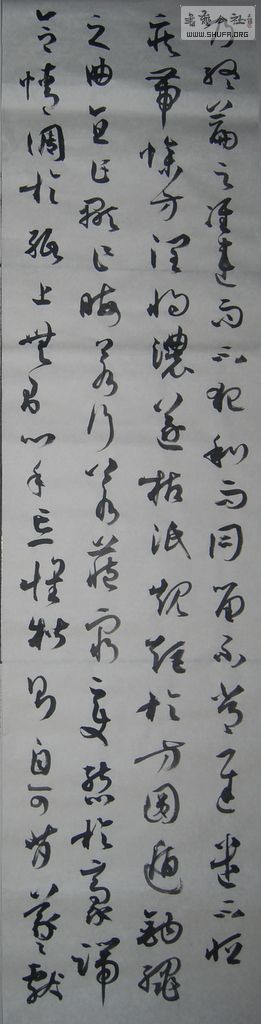 書藝公社
WWW.SHUFA.ORG
乃終篇之准違而不犯和而不同留不常遲遣不恒
疾帶燥方潤將濃遂枯泯規矩於方圓遁鉤繩
之曲直乍顯乍晦若行若藏窮變態於豪端
合情調於紙上無間心手忘懷楷則自可背羲獻